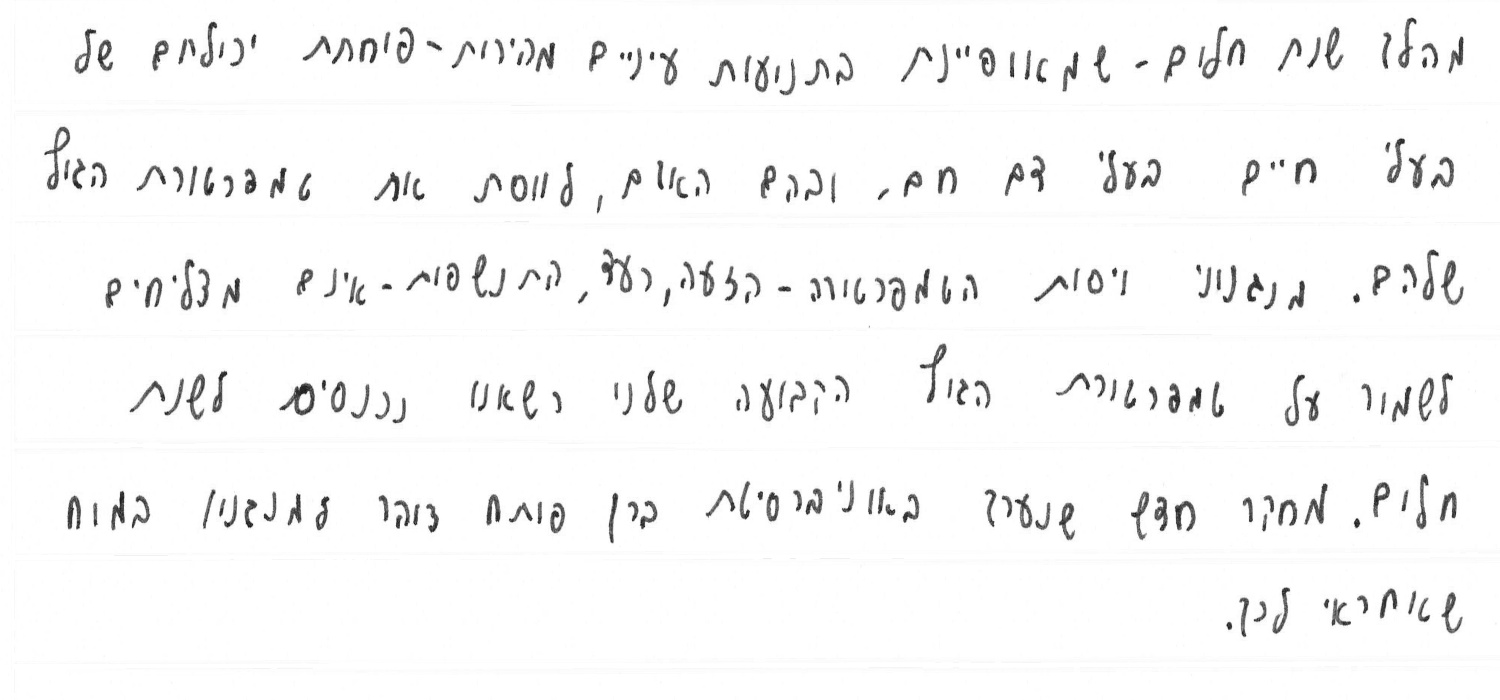 מהלך שנת חלום - שמאופיינת בתנועות עיניים מהירות - פוחתת יכולתם של
בעלי חיים בעלי דם חם, ובהם האדם, לווסת את טמפרטורת הגוף
שלהם. מנגנוני ויסות הטמפרטורה - הזעה, רעד, התנשפות - אינם מצליחים
לשמור על טמפרטורת הגוף הקבועה שלנו כשאנו נכנסים לשנת
חלום. מחקר חדש שנערך באוניברסיטת ברן פותח צוהר למנגנון במוח
שאחראי לכך.